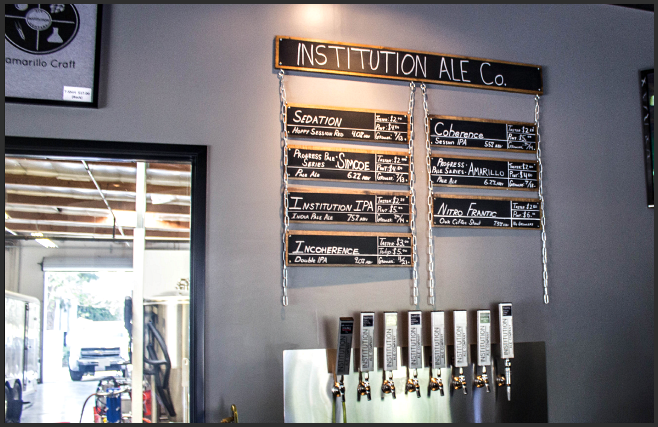 amarillo Craft
INSTITUTION ALE Co.
SEDATION
HOPPY SESSION RED 4.0% ABV
TASTER: $2.00
PINT: $4.00
GROWLER: $/13.
PROGRESS PALE SERIES: SIMCOE
PALE ALE 6.2% ABV
TASTER: $2.00
PINT: $4.00
INSTITUTION IPA
INDIA PALE ALE 7.5% ABV
TASTER: $2.00
PINT: $5.00
INCOHERENCE
DOUBLE IPA
Coherence
SESSION IPA
TASTER $2.00
PROGRESS PALE SERIES: AMARILLO
PALE ALE 6.2% ABV
TASTER $2.00
PINT: $4.00
NITRO FRANTIC
OAK COFFEE STOUT
TASTER $2.00
PINT: $6.00
NO GROWLERS
INSTITUTION
INSTITUTION
INSTITUTION
INSTITUTION
INSTITUTION
INSTITUTION
INSTITUTION